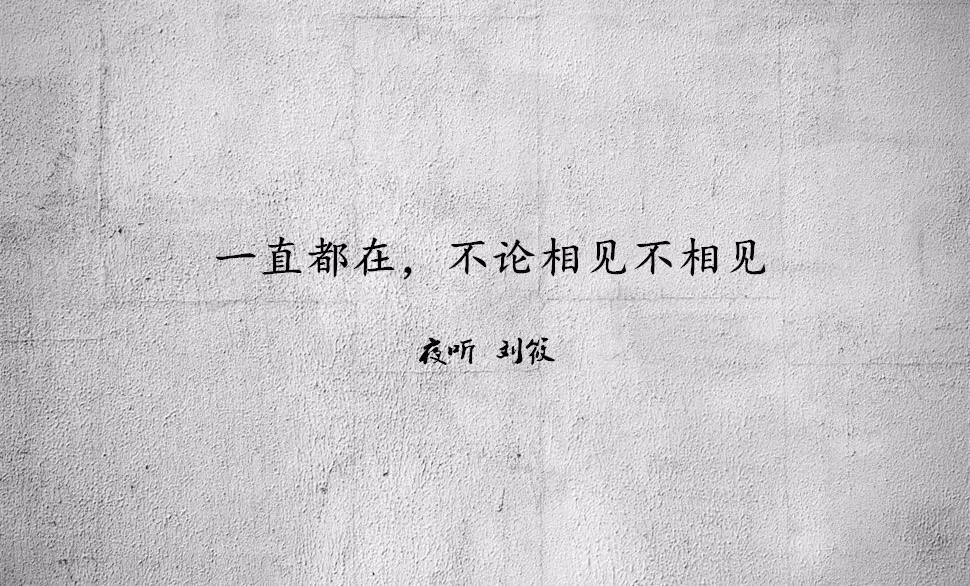 一直都在，不论相见不相见
夜听 刘筱